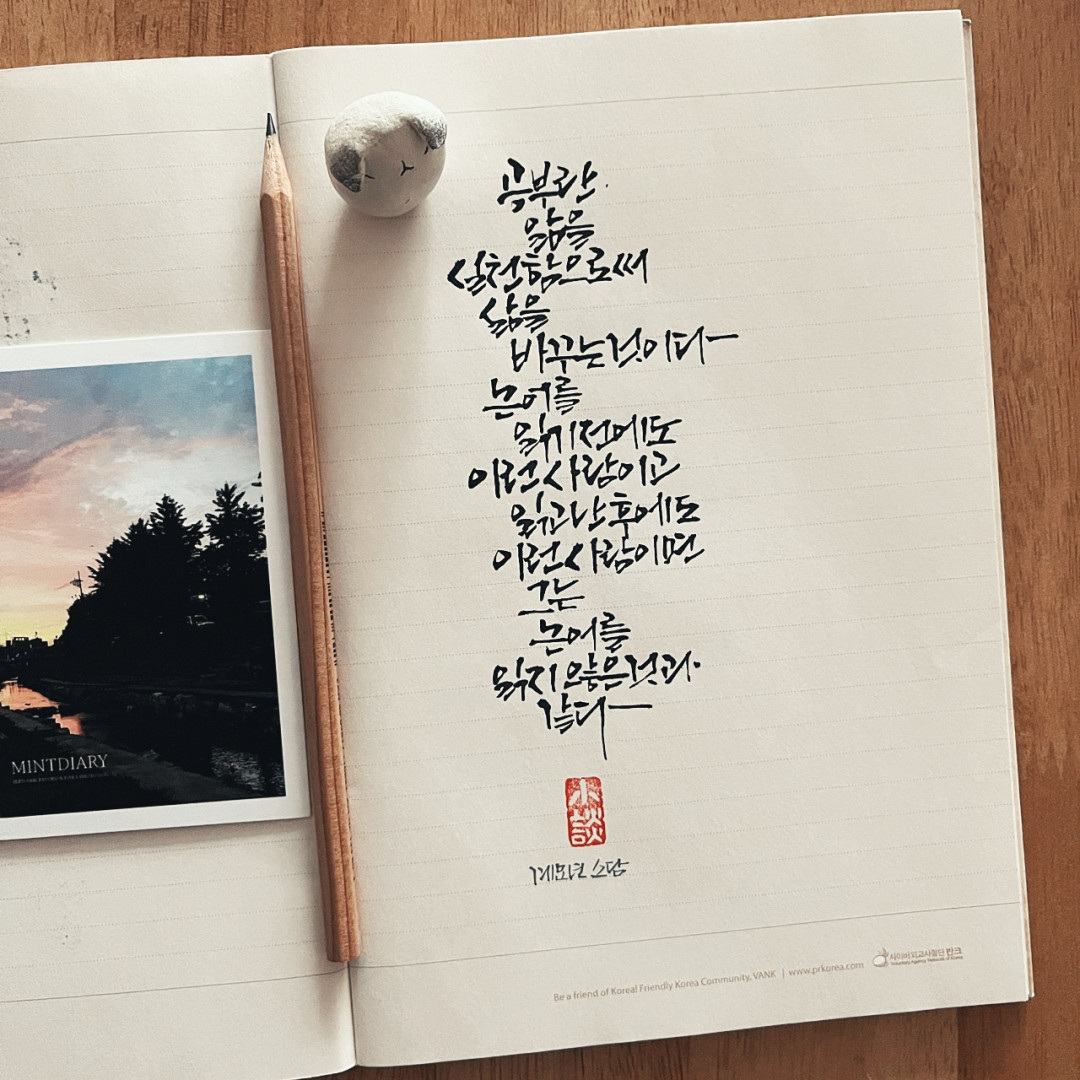 공부란
앎을
실천함으로써
삶을
바꾸는것이다
논어를
읽기전에도
이런사람이고
읽고난후에도
이런사람이면
그는
논어를
읽지않은것과
같다
小談
계묘년 소담
MINTDIARY
Be a friend of Korea! Friendly Korea Community, VANK | www.prkorea.com
사이버외교사절단 반크
Voluntary Agency Network of Korea